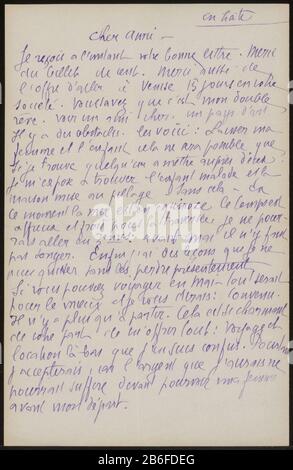 en hâte
cher ami -
Je reçois à l'instant votre bonne lettre. Merci
du billet de cent. Merci aussi de
l'offre d'aller à Venise 15 jours en votre
société. Vous savez que c'est mon double
rêve. Voir un ami cher. un pays d'art
Il y a des obstacles. Les voici : Laisser ma
femme et l'enfant cela ne m'est possible que
si je trouve quelqu'un à mettre auprès d'eux :
Je m'expose à trouver l'enfant malade et la
maison mise au pillage sans cela - En
ce moment la
affreux et
rais aller en avant mai il n'y faut
pas songer. Enfin j'ai des leçons que je ne
puis quitter sans les perdre présentement
Si vous pouvez voyager en Mai tout serait
pour le mieux et je vous dirais : convenu.
Il n'y a plus qu'à partir. Cela est si charmant
de votre part de m'offrir tout : voyage et
location là-bas que j'en suis confus. Pourtant
j'accepterais, car l'argent que j'aurais ne
pourrait suffire devant pourvoir ma femme
avant mon départ.
alamy
Image ID: 2B6FDEG
www.alamy.com